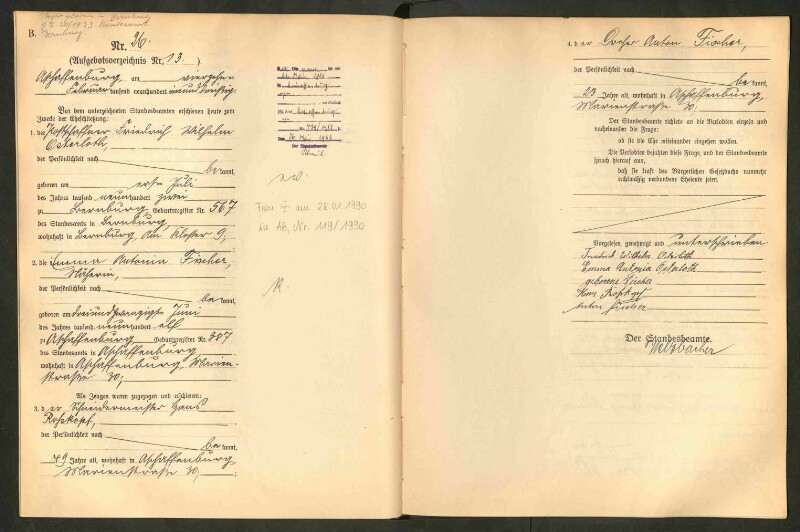 B.
Nr. 26.
(Aufgebotsverzeichnis Nr. 13.)
Aschaffenburg am vierzehn
Februar tausend neunhundert neunddreißig.
Vor dem unterzeichneten Standesbeamten erschienen heute zum
Zwecke der Eheschließung:
1. der Friedrich Wilhelm
Osterloth,
der Persönlichkeit nach
bekannt,
geboren am erste Juli
des Jahres tausend neunhundert zwei
zu Bernburg Geburtsregister Nr. 567
des Standesamts in Bernburg,
wohnhaft in Bernburg, Am Kloster 9,
2. die Emma Antonia Fischer,
Näherin,
der Persönlichkeit nach
bekannt,
geboren am dreiundzwanzigst Juni
des Jahres tausend neunhundert elf
zu Aschaffenburg Geburtsregister Nr. 387
des Standesamts in Aschaffenburg
wohnhaft in Aschaffenburg, Marien-
straße 30;
Als Zeugen waren zugezogen und erschienen:
3. der Schneidermeister Hans
Roßkopf,
der Persönlichkeit nach
bekannt,
49 Jahre alt, wohnhaft in Aschaffenburg,
Marienstraße 30;
Frau + am 28.01.1990
in AB, Nr. 119/1990
4. der Dreher Anton Fischer,
der Persönlichkeit nach
bekannt,
23 Jahre alt, wohnhaft in Aschaffenburg,
Marienstraße 30;
Der Standesbeamte richtete an die Verlobten einzeln und
nacheinander die Frage:
ob sie die Ehe miteinander eingehen wollen.
Die Verlobten bejahten diese Frage, und der Standesbeamte
sprach hierauf aus,
daß sie kraft des Bürgerlichen Gesetzbuchs nunmehr
rechtmäßig verbundene Eheleute seien.
Vorgelesen, genehmigt und unterschrieben
Friedrich Wilhelm Osterloth
Emma Antonia Osterloth
geborene Fischer
Hans Roßkopf
Anton Fischer
Der Standesbeamte.
Welzbacher